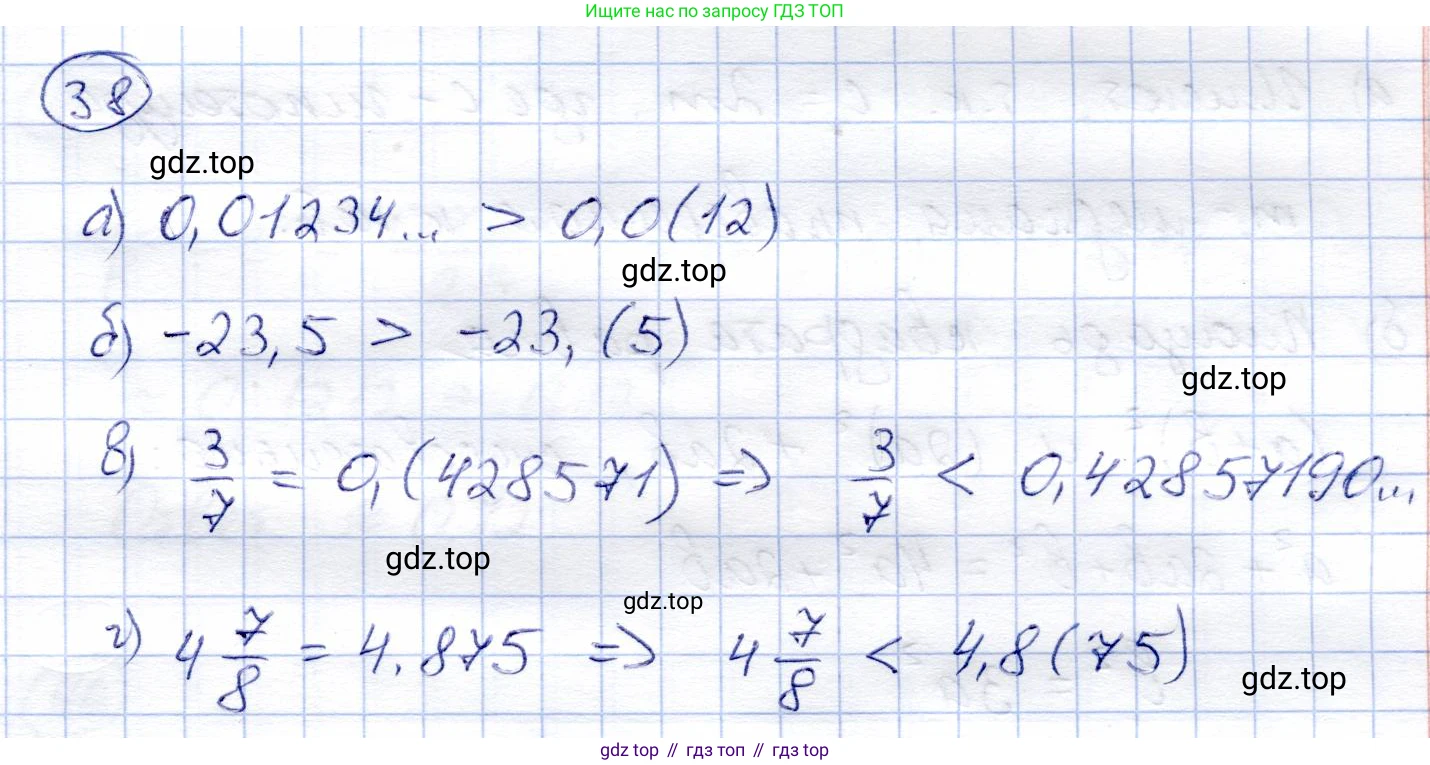 Ищите нас по запросу ГДЗ ТОП
38
gdz.top
а) 0,01234... > 0,0(12)
gdz.top
б) -23,5 > -23,(5)
gdz.top
в) 3/7 = 0,(428571) => 3/7 < 0,42857190...
gdz.top
gdz.top
г) 4 7/8 = 4.875 => 4 7/8 < 4,8(75)
gdz.top
gdz top // гдз топ // gdz top